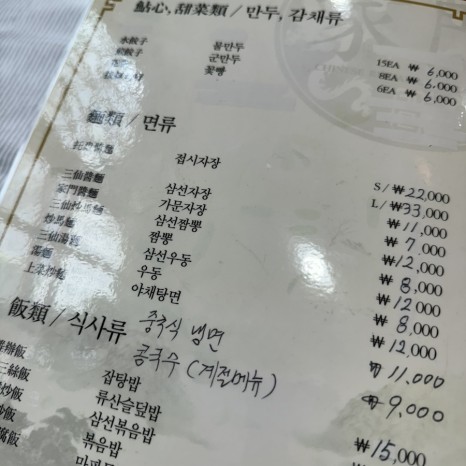 點心, 甜菜類 / 만두, 감채류
水餃子 물만두 15EA ₩ 6,000
군만두 8EA ₩ 6,000
꽃빵 6EA ₩ 6,000
麵類 / 면류
접시자장 S/₩22,000
L/₩33,000
三仙醬麵 삼선자장 ₩11,000
家門醬麵 가문자장 ₩ 7,000
三仙炒馬麵 삼선짬뽕 ₩12,000
炒馬麵 짬뽕 ₩ 8,000
三仙湯麵 삼선우동 ₩12,000
湯麵 우동 ₩ 8,000
上菜炒麵 야채탕면 ₩12,000
중국식 냉면 ₩ 11,000
콩국수 (계절메뉴) ₩ 9,000
飯類 / 식사류
잡탕밥 ₩15,000
류산슬덮밥
삼선볶음밥
볶음밥